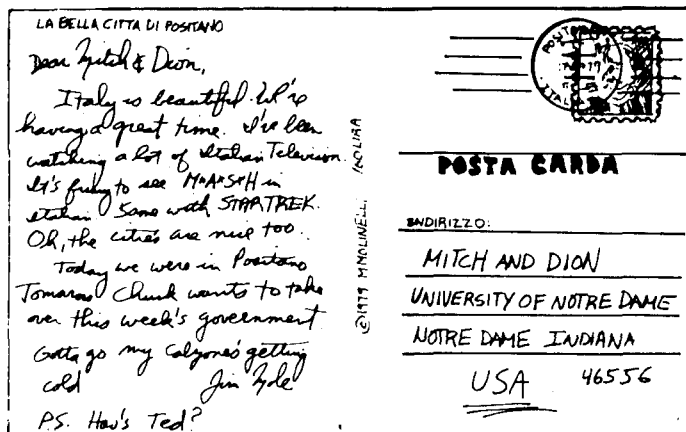 LA BELLA CITTA DI POSITANO
Dear Mitch & Dion,
Italy is beautiful. We're
having a great time. I've been
watching a lot of Italian Television.
It's funny to see M*A*S*H in
Italian Same with STAR TREK.
Oh, the cities are nice too.
Today we were in Positano
Tomorrow Chuck wants to take
over this week's government
Gotta go my calzone's getting
cold
Jim
P.S. How's Ted?
©1979 M MOLINELLI 160 LIRA
POSITANO
ITALIA
POSTA CARDA
INDIRIZZO:
MITCH AND DION
UNIVERSITY OF NOTRE DAME
NOTRE DAME INDIANA
USA 46556